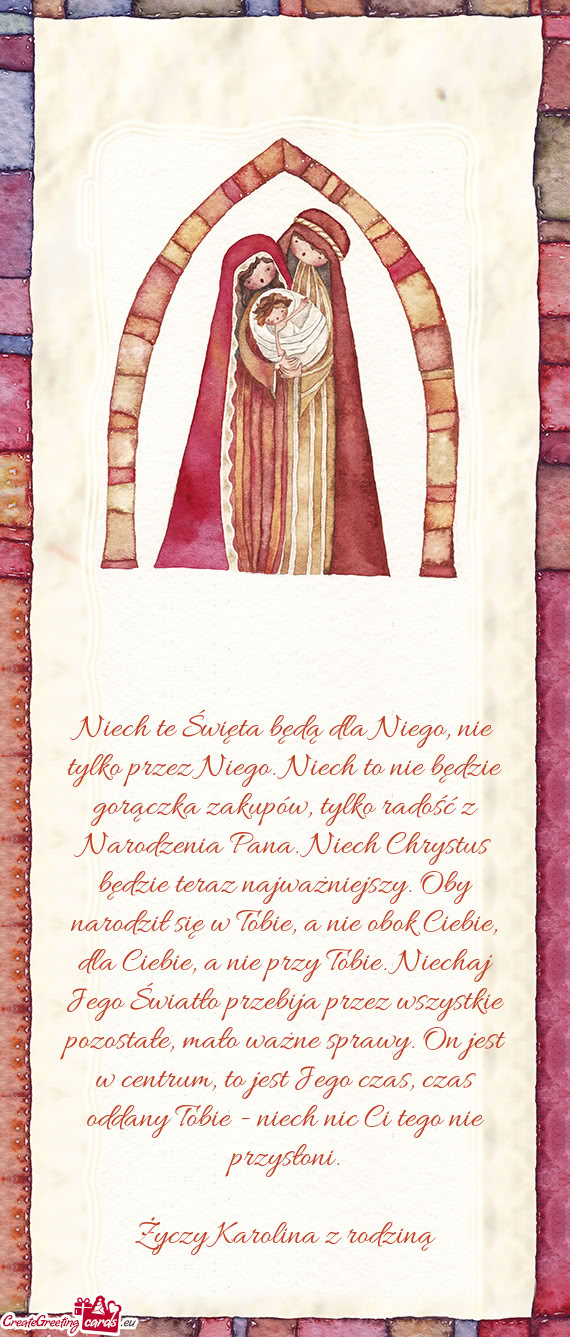 Niech te Święta będą dla Niego, nie
tylko przez Niego. Niech to nie będzie
gorączka zakupów, tylko radość z
Narodzenia Pana. Niech Chrystus
będzie teraz najważniejszy. Oby
narodził się w Tobie, a nie obok Ciebie,
dla Ciebie, a nie przy Tobie. Niechaj
Jego Światło przebija przez wszystkie
pozostałe, mało ważne sprawy. On jest
w centrum, to jest Jego czas, czas
oddany Tobie - niech nic Ci tego nie
przysłoni.
Życzy Karolina z rodziną
CreateGreeting cards .eu